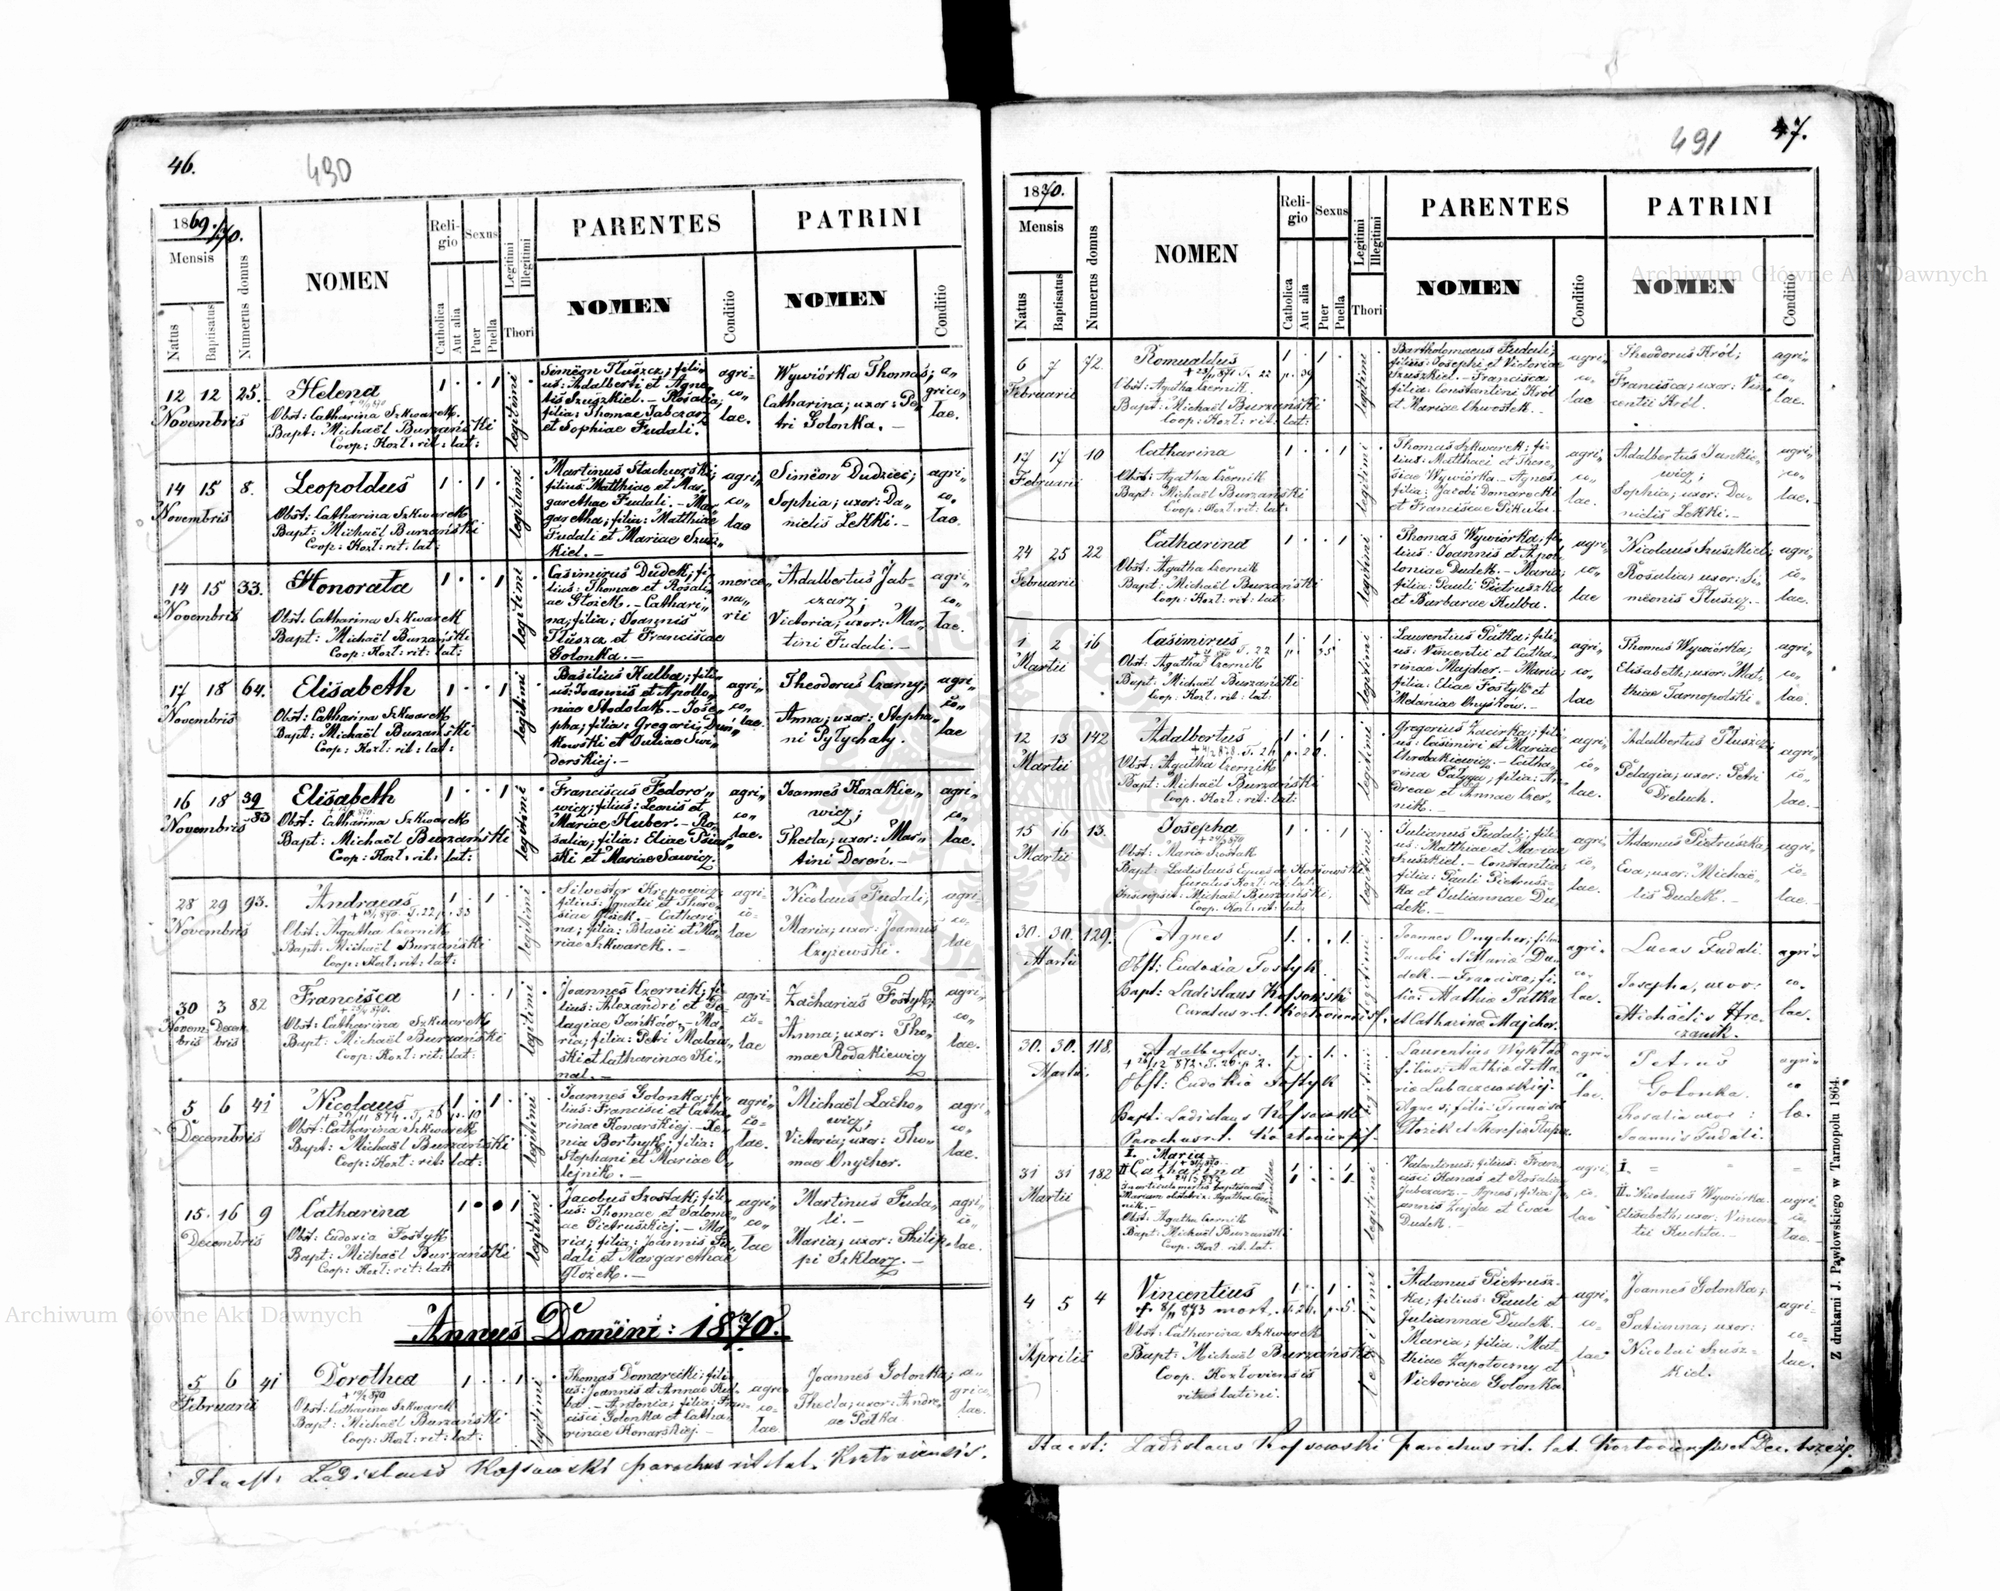 46.
490
1869./70.
Mensis
Natus
Baptisatus
Numerus domus
NOMEN
Religio
Catholica
Aut alia
Sexus
Puer
Puella
Legitimi
Illegitimi
Thori
PARENTES
NOMEN
Conditio
PATRINI
NOMEN
Conditio
12 12 25.
Novembris
Helena
Obst: Catharina Szkwarek
Bapt: Michaël Burzański
Coop: Kozl: rit: lat:
1 . . 1
legitimi
Simëon Tłuszcz; fili„
us: Adalberti et Agne„
tis Szuszkiel. — Rosalia;
filia: Thomae Jabczarz
et Sophiae Fudali.
agri„
co„
lae.
Wywiórka Thomas;
Catharina; uxor: Pe„
tri Golonka. —
a„
grico„
lae.
14 15 8.
Novembris
Leopoldus
Obst: Catharina Szkwarek
Bapt: Michaël Burzański
Coop: Kozl: rit: lat:
1 . 1 .
legitimi
Martinus Stachurski;
filius: Matthiae et Mar„
garethae Fudali. — Mar„
garetha; filia: Matthiae
Fudali et Mariae Szusz„
kiel. —
agri„
co„
lae
Simëon Dudziec;
Sophia; uxor: Da„
nielis Lekki. —
agri„
co„
lae.
14 15 33.
Novembris
Honorata
Obst: Catharina Szkwarek
Bapt: Michaël Burzański
Coop: Kozl: rit: lat:
1 . . 1
legitimi
Casimirus Dudek; fi„
lius: Thomae et Rosali„
ae Głożek. — Cathari„
na; filia: Joannis
Tłuszcz et Franciscae
Golonka. —
merce„
na„
rii
Adalbertus Jab„
czarz;
Victoria; uxor: Mar„
tini Fudali. —
agri„
co„
lae.
17 18 64.
Novembris
Elisabeth
Obst: Catharina Szkwarek
Bapt: Michaël Burzański
Coop: Kozl: rit: lat:
1 . . 1
legitimi
Basilius Kulba; fili„
us: Joannis et Apollo„
niae Stodolak. — Jose„
pha; filia: Gregorii Duń„
kowski et Juliae Swi„
derskiej. —
agri„
co„
lae.
Theodorus Czarny;
Anna; uxor: Stepha„
ni Pytychaty.
agri„
co„
lae
16 18 39/33
Novembris
Elisabeth
Obst: Catharina Szkwarek
Bapt: Michaël Burzański
Coop: Kozl: rit: lat:
1 . . 1
legitimi
Franciscus Fedoro„
wicz; filius: Leonis et
Mariae Huber. — Ro„
salia; filia: Eliae
et Mariae Sawicz.
agri„
co„
lae.
Joannes Kozakie„
wicz;
Thecla; uxor: Mar„
tini Deroń. —
agri„
co„
lae.
28 29 93.
Novembris
Andraeas
Obst: Agatha Czernik
Bapt: Michaël Burzański
Coop: Kozl: rit: lat:
1 . 1 .
legitimi
Silvester Krępowicz;
filius: Ignatii et There„
siae Głożek. — Cathari„
na; filia: Blasii et Ma„
riae Szkwarek. —
agri„
co„
lae
Nicolaus Fudali;
Maria; uxor: Joannis
Czyżewski.
agri„
co„
lae
30 3 82
Novembris Decembris
Francisca
Obst: Catharina Szkwarek
Bapt: Michaël Burzański
Coop: Kozl: rit: lat:
1 . . 1
legitimi
Joannes Czernik; fi„
lius: Alexandri et Pe„
lagiae Janków. — Ma„
ria; filia: Petri
et Catharinae Ki„
nal. —
agri„
co„
lae
Zacharias Fostyk;
Anna; uxor: Tho„
mae Rodakiewicz
agri„
co„
lae.
5 6 41
Decembris
Nicolaus
Obst: Catharina Szkwarek
Bapt: Michaël Burzański
Coop: Kozl: rit: lat:
1 . 1 .
legitimi
Joannes Golonka; fi„
lius: Francisci et Catha„
rinae Konarskiej. — Xe„
nia Bortnyk; filia:
Stephani et Mariae O„
lejnik. —
agri„
co„
lae.
Michaël Lacho„
wicz;
Victoria; uxor: Tho„
mae Onycher.
agri„
co„
lae.
15. 16 9
Decembris
Catharina
Obst: Eudoxia Fostyk
Bapt: Michaël Burzański
Coop: Kozl: rit: lat:
1 . . 1
legitimi
Jacobus Szostak; fili„
us: Thomae et Salome„
ae Pietruszkiej. — Ma„
ria; filia: Joannis Fu„
dali et Margarethae
Głożek. —
agri„
co„
lae
Martinus Fuda„
li. —
Maria; uxor: Philip„
pi Szklarz. —
agri„
co„
lae.
Annus Domini: 1870.
5 6 41
Februarii
Dorothea
Obst: Catharina Szkwarek
Bapt: Michaël Burzański
Coop: Kozl: rit: lat:
1 . . 1
legitimi
Thomas Domarecki; fili„
us: Joannis et Annae
— Antonia; filia: Fran„
cisci Golonka et Catha„
rinae Konarskiej. —
agri„
co„
lae
Joannes Golonka;
Thecla; uxor: Andre„
ae Patka
a„
grico„
lae.
Ita est: Ladislaus Kossowski parochus rit. lat. Kozloviensis.
491
47.
1870.
Mensis
Natus
Baptisatus
Numerus domus
NOMEN
Religio
Catholica
Aut alia
Sexus
Puer
Puella
Legitimi
Illegitimi
Thori
PARENTES
NOMEN
Conditio
PATRINI
NOMEN
Conditio
6 7 72.
Februarii
Romualdus
Obst: Agatha Czernik
Bapt: Michaël Burzański
Coop: Kozl: rit: lat:
1 . 1 .
legitimi
Bartholomaeus Fudali;
filius: Josephi et Victoriae
Szuszkiel. — Francisca;
filia: Constantini Król
et Mariae Chwostek. —
agri„
co„
lae
Theodorus Król;
Francisca; uxor: Vin„
centii Król.
agri„
co„
lae.
17 17 10
Februarii
Catharina
Obst: Agatha Czernik
Bapt: Michaël Burzański
Coop: Kozl: rit: lat:
1 . . 1
legitimi
Thomas Szkwarek; fi„
lius: Matthaei et There„
siae Wywiórka. — Agnes;
filia: Jacobi Domarecki
et Franciscae Pikulec.
agri„
co„
lae.
Adalbertus Jaskie„
wicz;
Sophia; uxor: Da„
nielis Lekki. —
agri„
co„
lae.
24 25 22
Februarii
Catharina
Obst: Agatha Czernik
Bapt: Michaël Burzański
Coop: Kozl: rit: lat:
1 . . 1
legitimi
Thomas Wywiórka; fi„
lius: Joannis et Apol„
loniae Dudek. — Maria;
filia: Pauli Pietruszka
et Barbarae Kulba.
agri„
co„
lae
Nicolaus Szuszkiel;
Rosalia; uxor: Si„
mëonis Tłuszcz. —
agri„
co„
lae.
1 2 16
Martii
Casimirus
Obst: Agatha Czernik
Bapt: Michaël Burzański
Coop: Kozl: rit: lat:
1 . 1 .
legitimi
Laurentius Patka; fili„
us: Vincentii et Catha„
rinae Majcher. — Maria;
filia: Eliae Fostyk et
Melaniae Onyśków. —
agri„
co„
lae
Thomas Wywiórka;
Elisabeth; uxor: Mat„
thiae Tarnopolski.
agri„
co„
lae.
12 13 142
Martii
Adalbertus
Obst: Agatha Czernik
Bapt: Michaël Burzański
Coop: Kozl: rit: lat:
1 . 1 .
legitimi
Gregorius Zaiorka; fili„
us: Casimiri et Mariae
Chrobakiewicz. — Catha„
rina Patyga; filia: An„
dreae et Annae Czer„
nik. —
agri„
co„
lae.
Adalbertus Tłuszcz;
Pelagia; uxor: Petri
Dreluch.
agri„
co„
lae.
15 16 13.
Martii
Josepha
Obst: Maria Szostak
Bapt: Ladislaus Eques de Kossowski
Curatus Kozl: rit: lat:
Inscripsit: Michaël Burzański
Coop: Kozl: rit: lat:
1 . . 1
legitimi
Julianus Fudali; fili„
us: Matthiae et Mariae
Szuszkiel. — Constantia;
filia: Pauli Pietrusz„
ka et Juliannae Du„
dek. —
agri„
co„
lae.
Adamus Pietruszka;
Eva; uxor: Michaë„
lis Dudek. —
agri„
co„
lae.
30. 30. 129.
Martii
Agnes
Obst: Eudoxia Fostyk
Bapt: Ladislaus Kossowski
Curatus r. l. Kozloviensis.
1 . . 1
legitimi
Joannes Onycher; filius
Jacobi et Mariae Du„
dek. — Francisca; fi„
lia: Mathiae Patka
et Catharinae Majcher.
agri„
co„
lae.
Lucas Fudali.
Josepha, uxor:
Michaëlis Hre„
czanik.
agri„
co„
lae.
30. 30. 118.
Martii
Adalbertus.
Obst: Eudokia Fostyk
Bapt: Ladislaus Kossowski
Parochus r. l. Kozloviensis.
1 . 1 .
legitimi
Laurentius
filius: Mathiae et Ma„
riae Lubaczewskiej.
Agnes; filia: Francisci
Głożek et Theresiae
agri„
co„
lae.
Petrus
Golonka.
Rosalia uxor:
Joannis Fudali.
agri„
co
lae.
31 31 182
Martii
I. Maria
II Catharina
In articulo mortis baptisavit
Mariam obstetrix: Agatha Czer„
nik. —
Obst: Agatha Czernik
Bapt: Michaël Burzański
Coop: Kozl: rit: lat:
gemellae
1 . . 1
1 . . 1
legitimi
Valentinus; filius: Fran„
cisci Kunas et Rosaliae
Jabczarz. — Agnes; filia: Jo„
annis Zajda et Evae
Dudek. —
agri„
co„
lae
I. =
II. Nicolaus Wywiórka.
Elisabeth uxor: Vincen„
tii Kuchta. —
agri„
co„
lae.
4 5 4
Aprilis
Vincentius
Obst: Catharina Szkwarek
Bapt: Michaël Burzański
Coop. Kozloviensis
ritus latini.
1 . 1 .
legitimi
Adamus Pietrusz„
ka; filius: Pauli et
Juliannae Dudek. —
Maria; filia: Mat„
thiae Zapotoczny et
Victoriae Golonka
agri„
co„
lae
Joannes Golonka;
Tatianna; uxor:
Nicolai Szusz„
kiel.
agri„
co„
lae.
Ita est: Ladislaus Kossowski parochus rit. lat. Kozloviensis et Dec.
Z drukarni J. Pawłowskiego w Tarnopolu 1864.
Archiwum Główne Akt Dawnych
Archiwum Główne Akt Dawnych